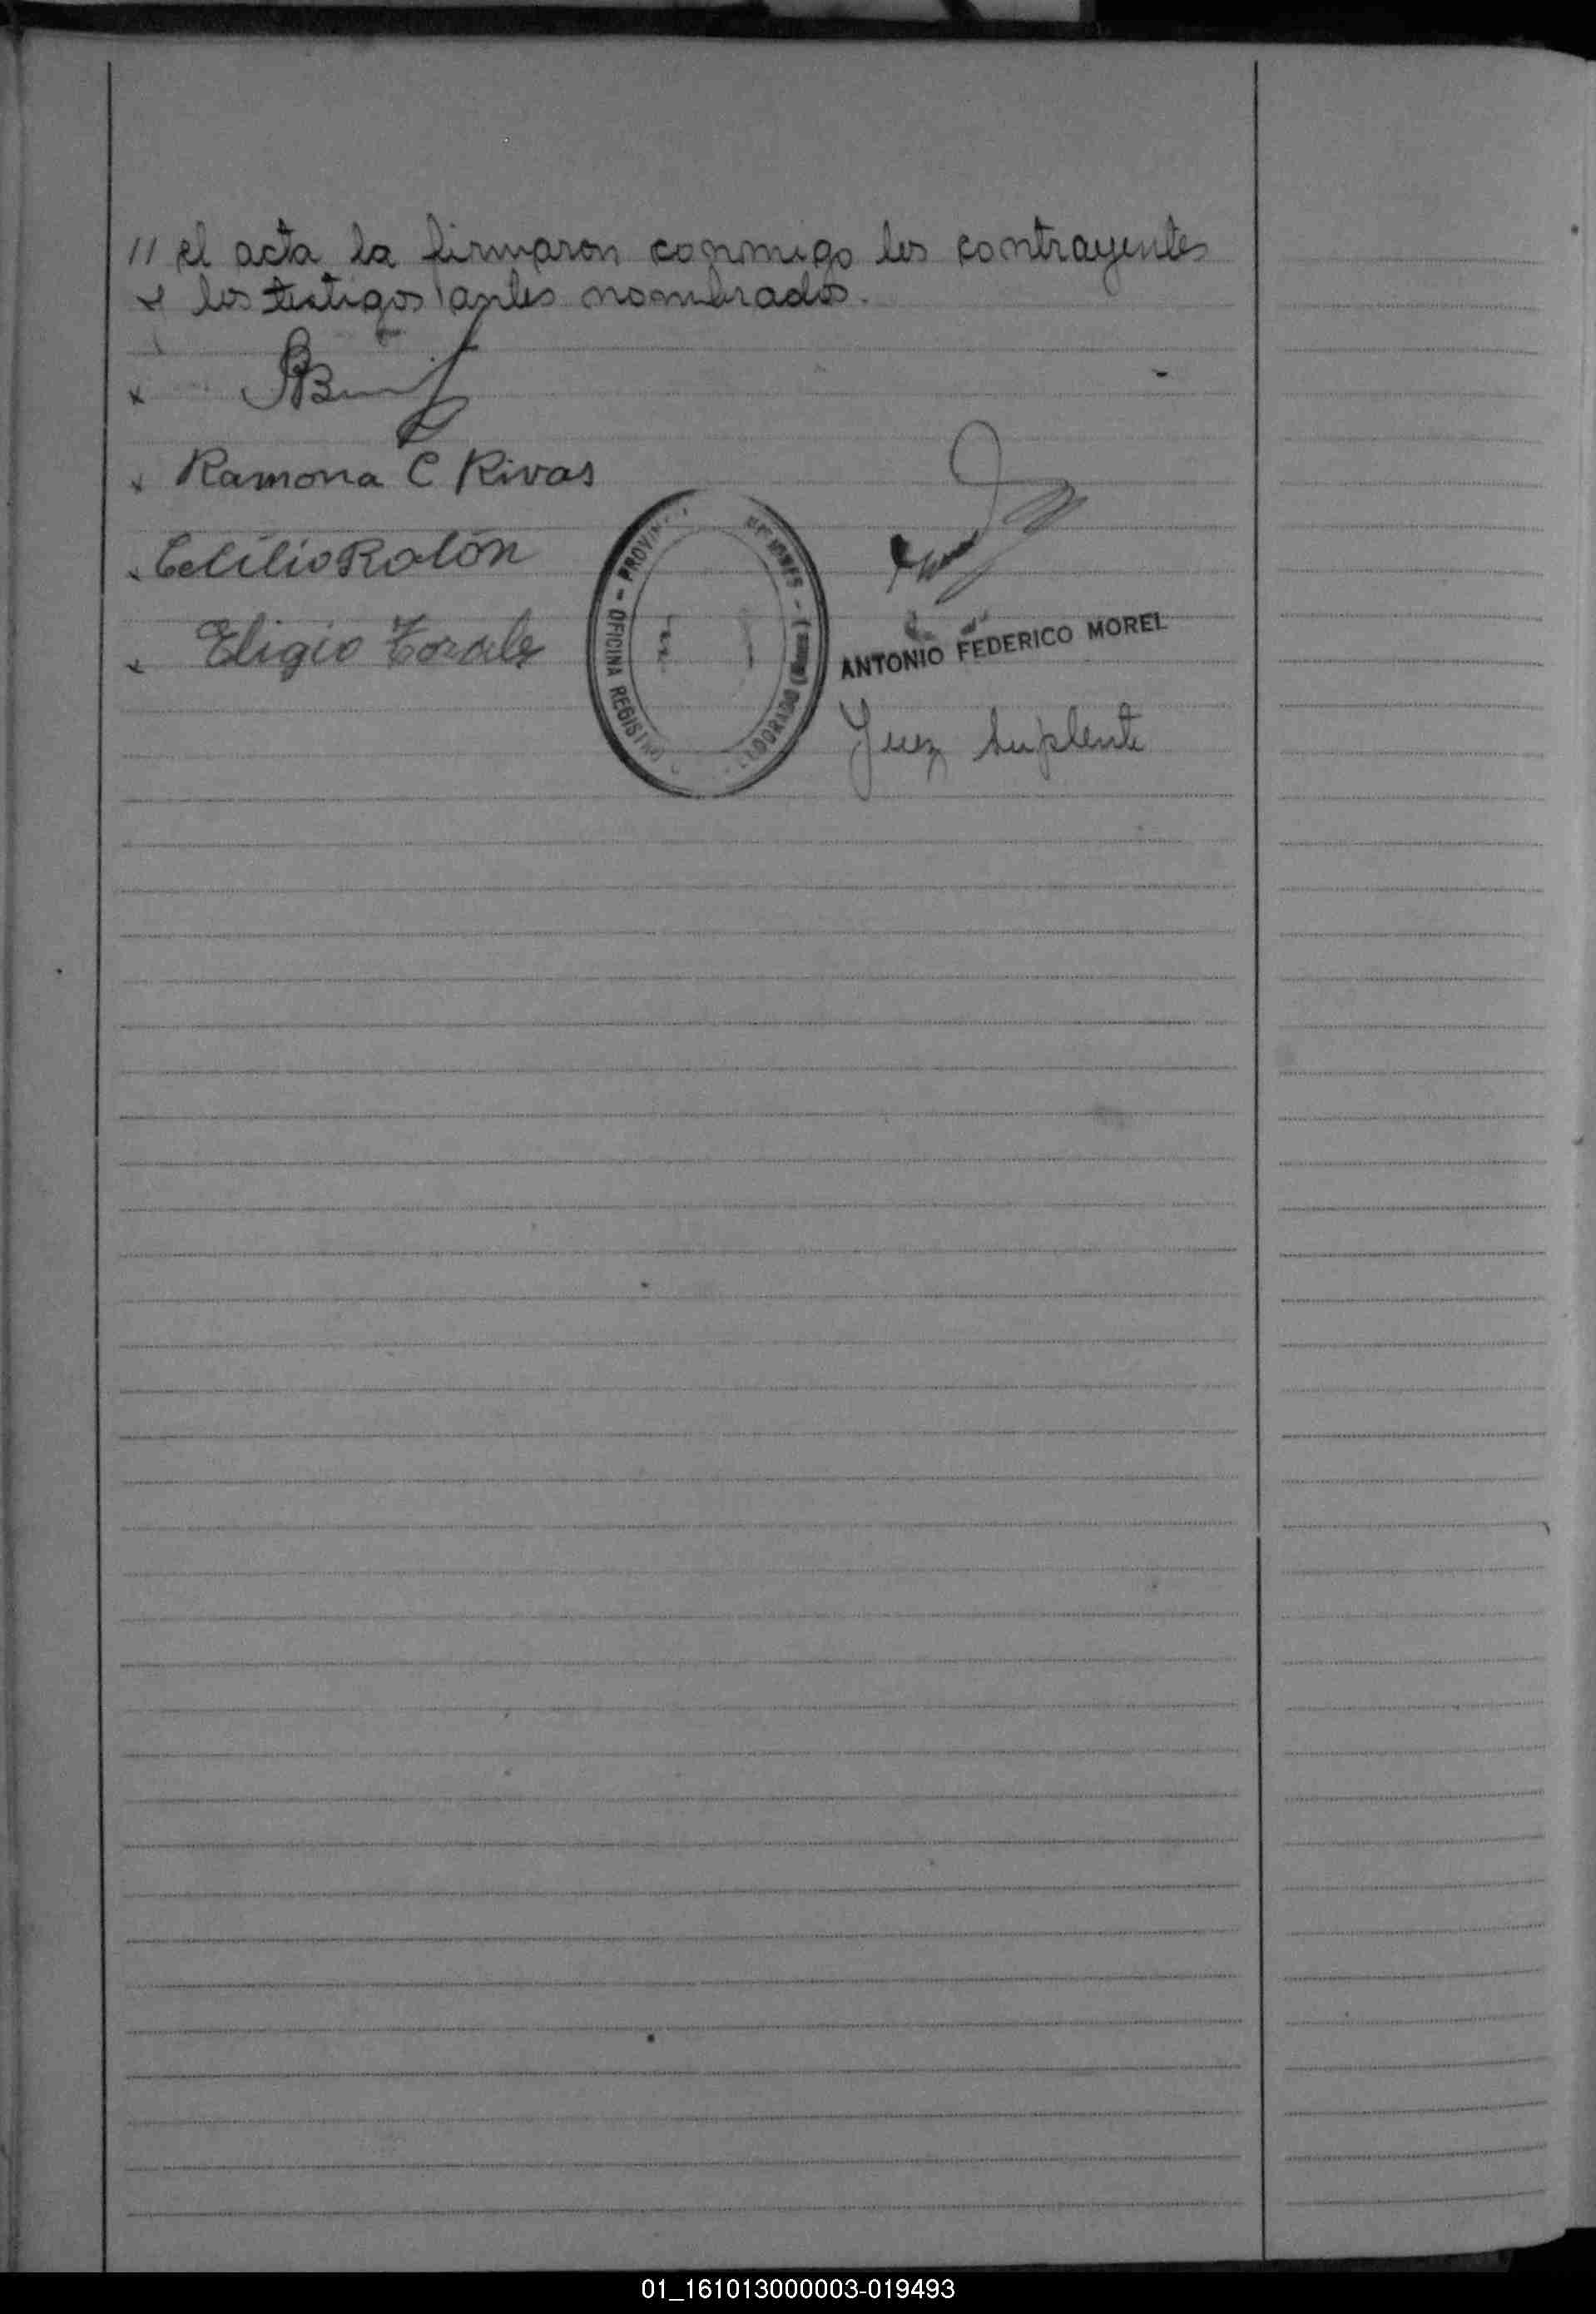 // el acta la firmaron conmigo los contrayentes
y los testigos antes nombrados.
x
x Ramona C Rivas
x Celilio Rolón
x Eligio Torales
OFICINA REGISTRO
ELDORADO
ANTONIO FEDERICO MOREL
Juez Suplente
01_161013000003-019493